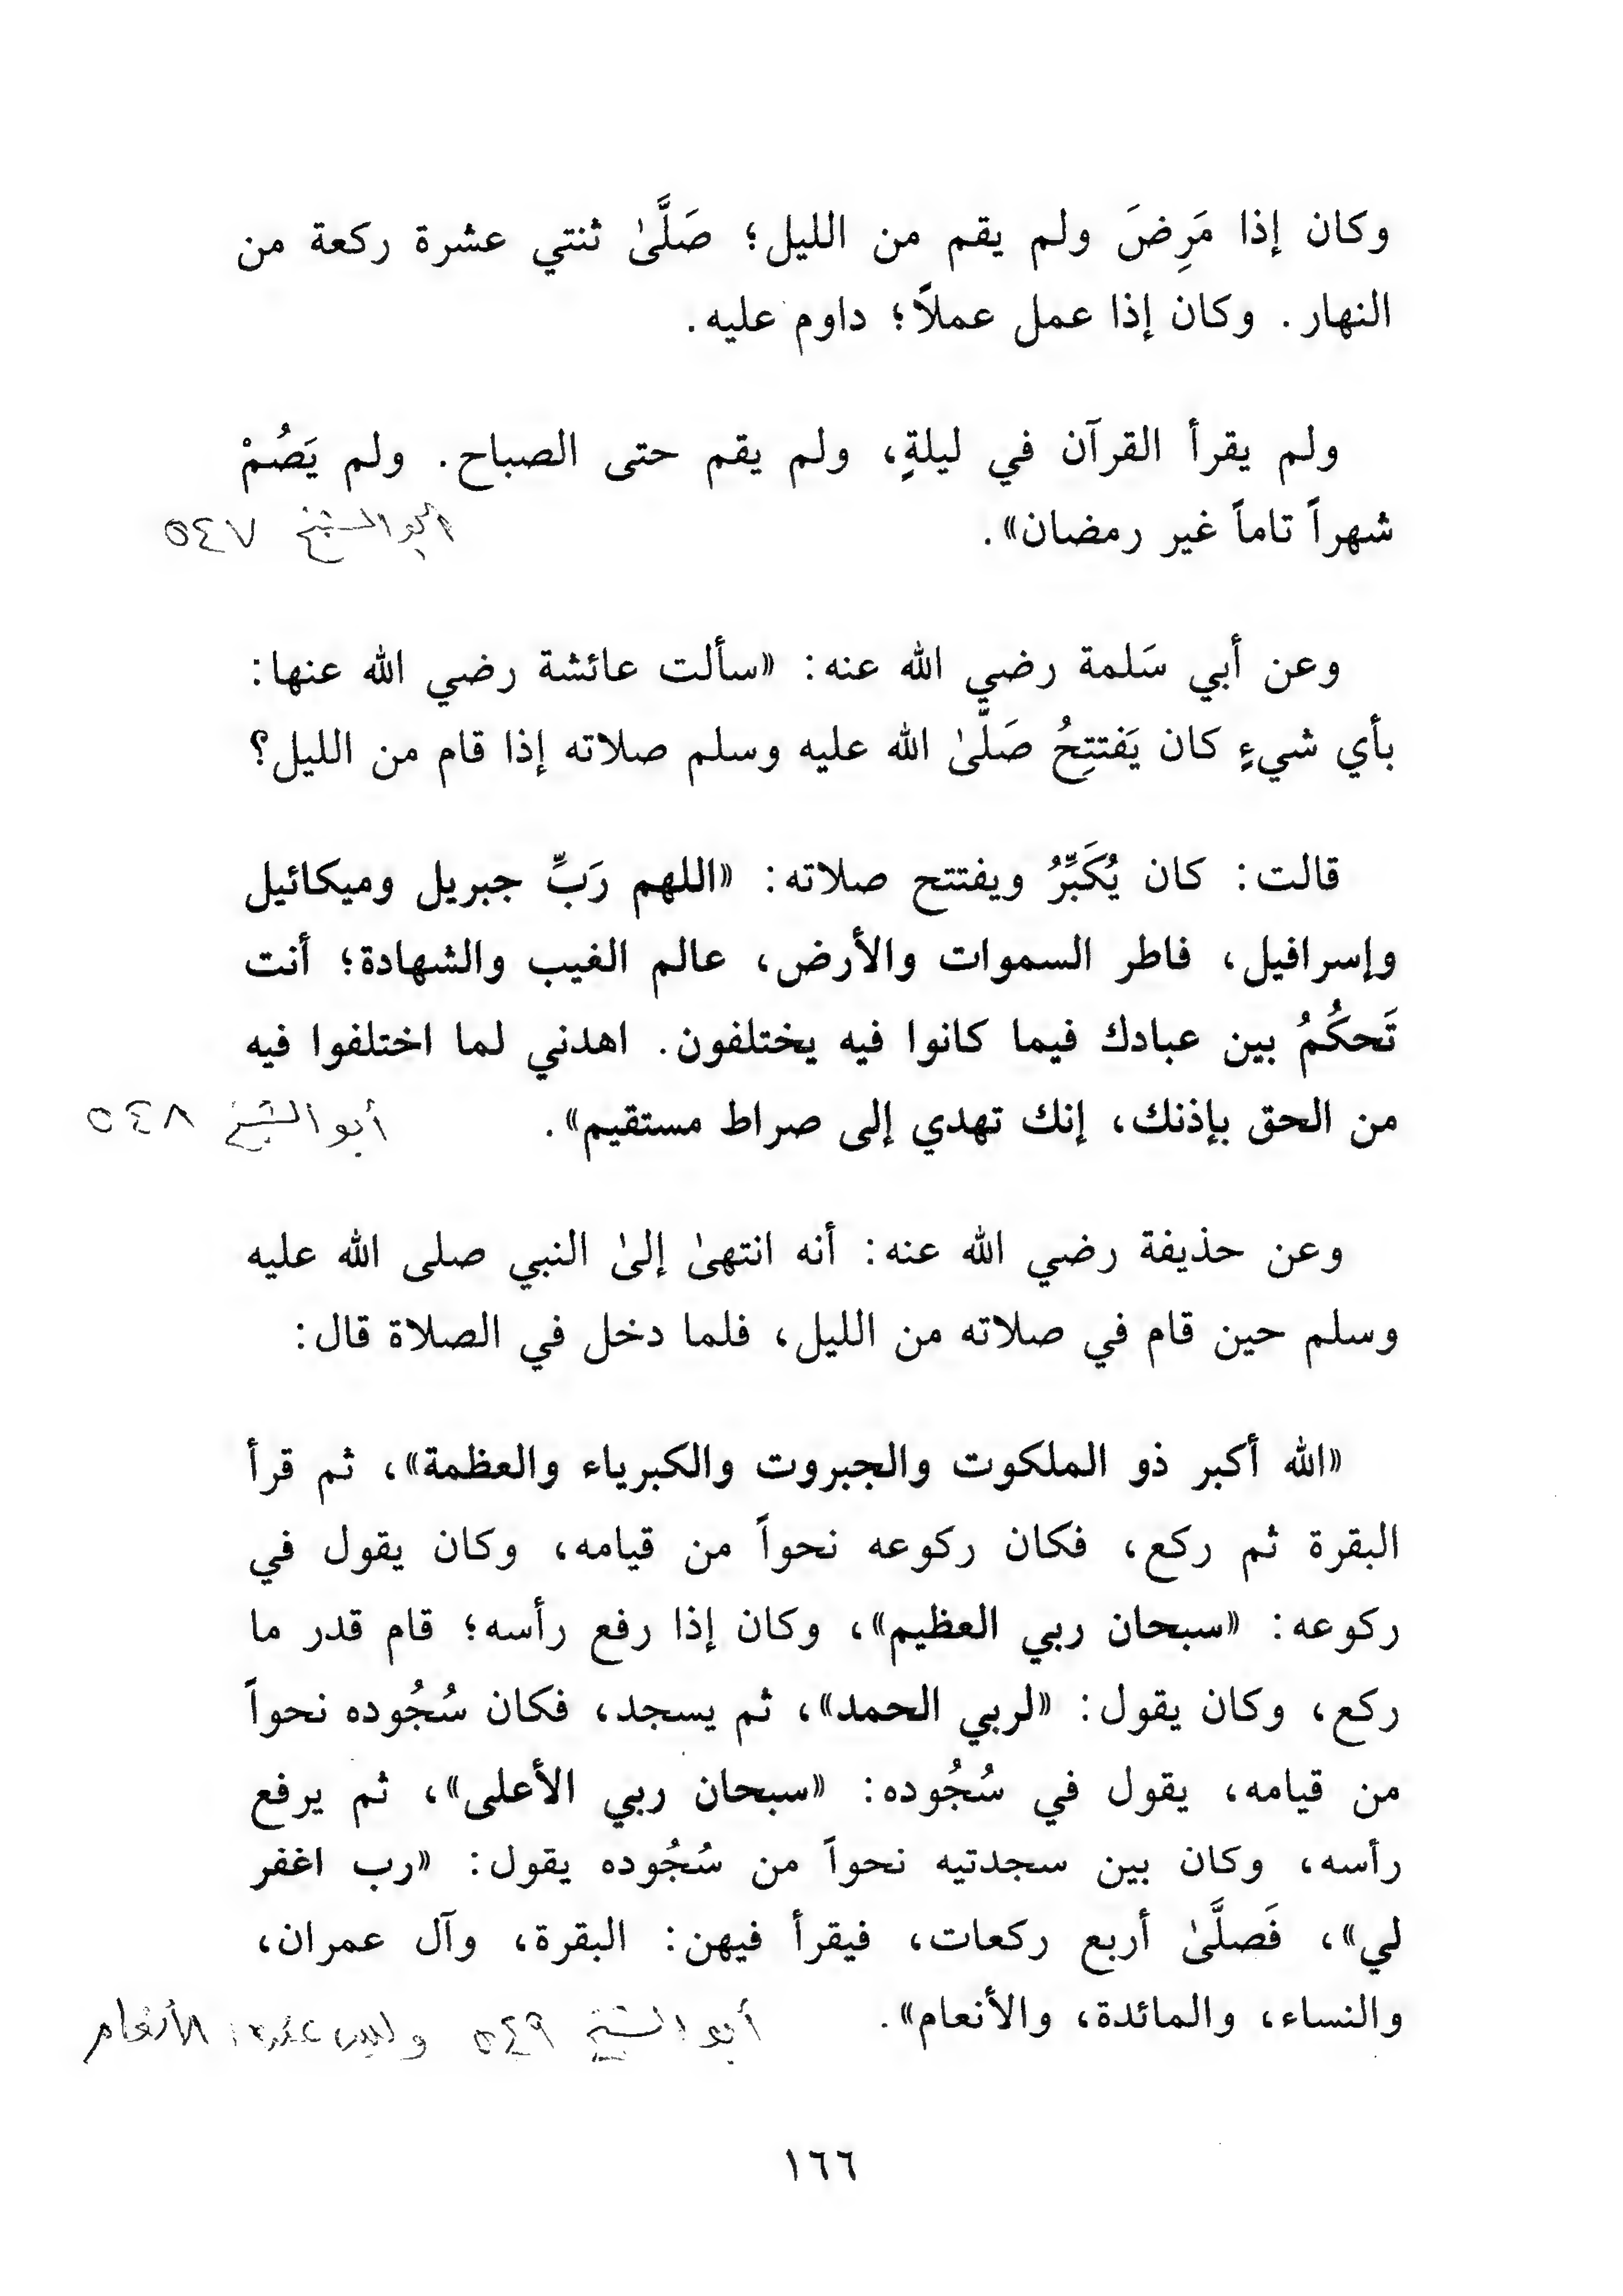 وكان إذا مَرِضَ ولم يقم من الليل؛ صَلَّىٰ ثنتي عشرة ركعة من
النهار. وكان إذا عمل عملاً؛ داوم عليه.
ولم يقرأ القرآن في ليلةٍ، ولم يقم حتى الصباح. ولم يَصُمْ
شهراً تاماً غير رمضان».
أبو الشيخ ٥٤٧
وعن أبي سَلمة رضي الله عنه: «سألت عائشة رضي الله عنها:
بأي شيءٍ كان يَفتتِحُ صَلَّىٰ الله عليه وسلم صلاته إذا قام من الليل؟
قالت: كان يُكَبِّرُ ويفتتح صلاته: «اللهم رَبِّ جبريل وميكائيل
وإسرافيل، فاطر السموات والأرض، عالم الغيب والشهادة؛ أنت
تَحكُمُ بين عبادك فيما كانوا فيه يختلفون. اهدني لما اختلفوا فيه
من الحق بإذنك، إنك تهدي إلى صراط مستقيم».
أبو الشيخ ٥٤٨
وعن حذيفة رضي الله عنه: أنه انتهىٰ إلىٰ النبي صلى الله عليه
وسلم حين قام في صلاته من الليل، فلما دخل في الصلاة قال:
«الله أكبر ذو الملكوت والجبروت والكبرياء والعظمة»، ثم قرأ
البقرة ثم ركع، فكان ركوعه نحواً من قيامه، وكان يقول في
ركوعه: «سبحان ربي العظيم»، وكان إذا رفع رأسه؛ قام قدر ما
ركع، وكان يقول: «لربي الحمد»، ثم يسجد، فكان سُجُوده نحواً
من قيامه، يقول في سُجُوده: «سبحان ربي الأعلى»، ثم يرفع
رأسه، وكان بين سجدتيه نحواً من سُجُوده يقول: «رب اغفر
لي»، فَصلَّىٰ أربع ركعات، فيقرأ فيهن: البقرة، وآل عمران،
والنساء، والمائدة، والأنعام».
أبو الشيخ ٥٤٩ وليس عنده: الأنعام
١٦٦